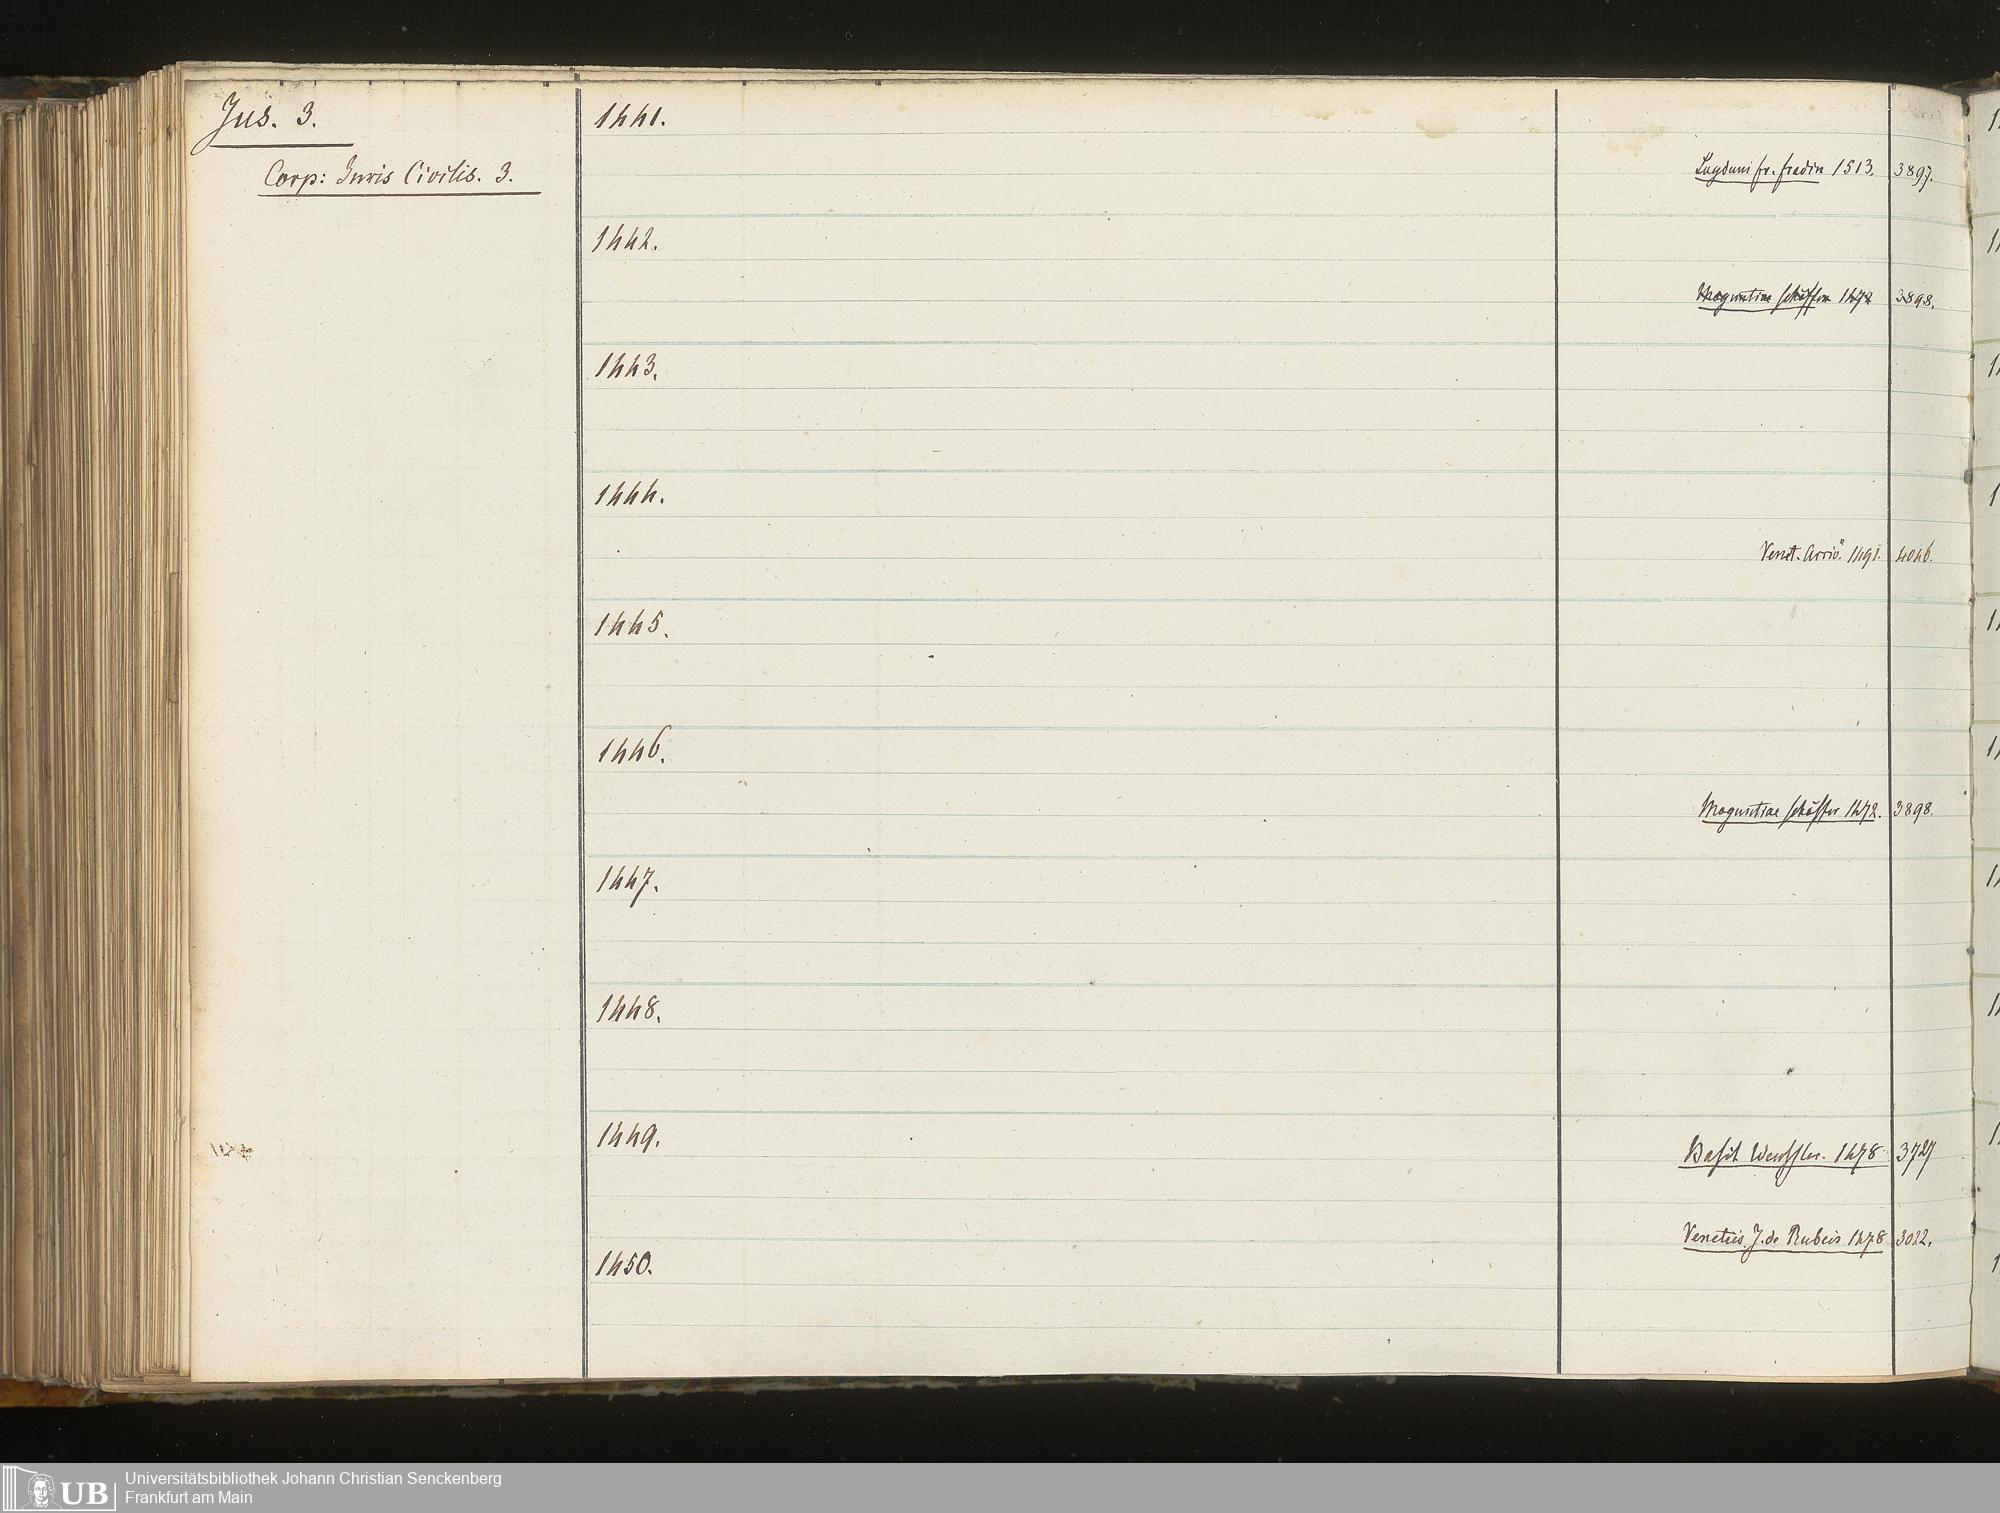 Jus. 3.
Corp: Iuris Civilis. 3.
1441.
Lugduni fr. fradin 1513. 3897.
1442.
Moguntiae schöffer 1472 3898.
1443.
1444.
Venet. 1491. 4046.
1445.
1446.
Moguntiae schöffer 1472. 3898.
1447.
1448.
1449.
Basil 1478 3727
Venetiis J. de Rubeis 1478 3022.
1450.
UB
Universitätsbibliothek Johann Christian Senckenberg
Frankfurt am Main